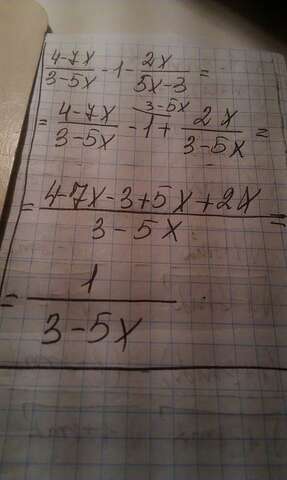 (4-7x)/(3-5x) - 1 - 2x/(5x-3) =
= (4-7x)/(3-5x) - 1 (3-5x) + 2x/(3-5x) =
= (4-7x-3+5x+2x)/(3-5x) =
= 1/(3-5x)